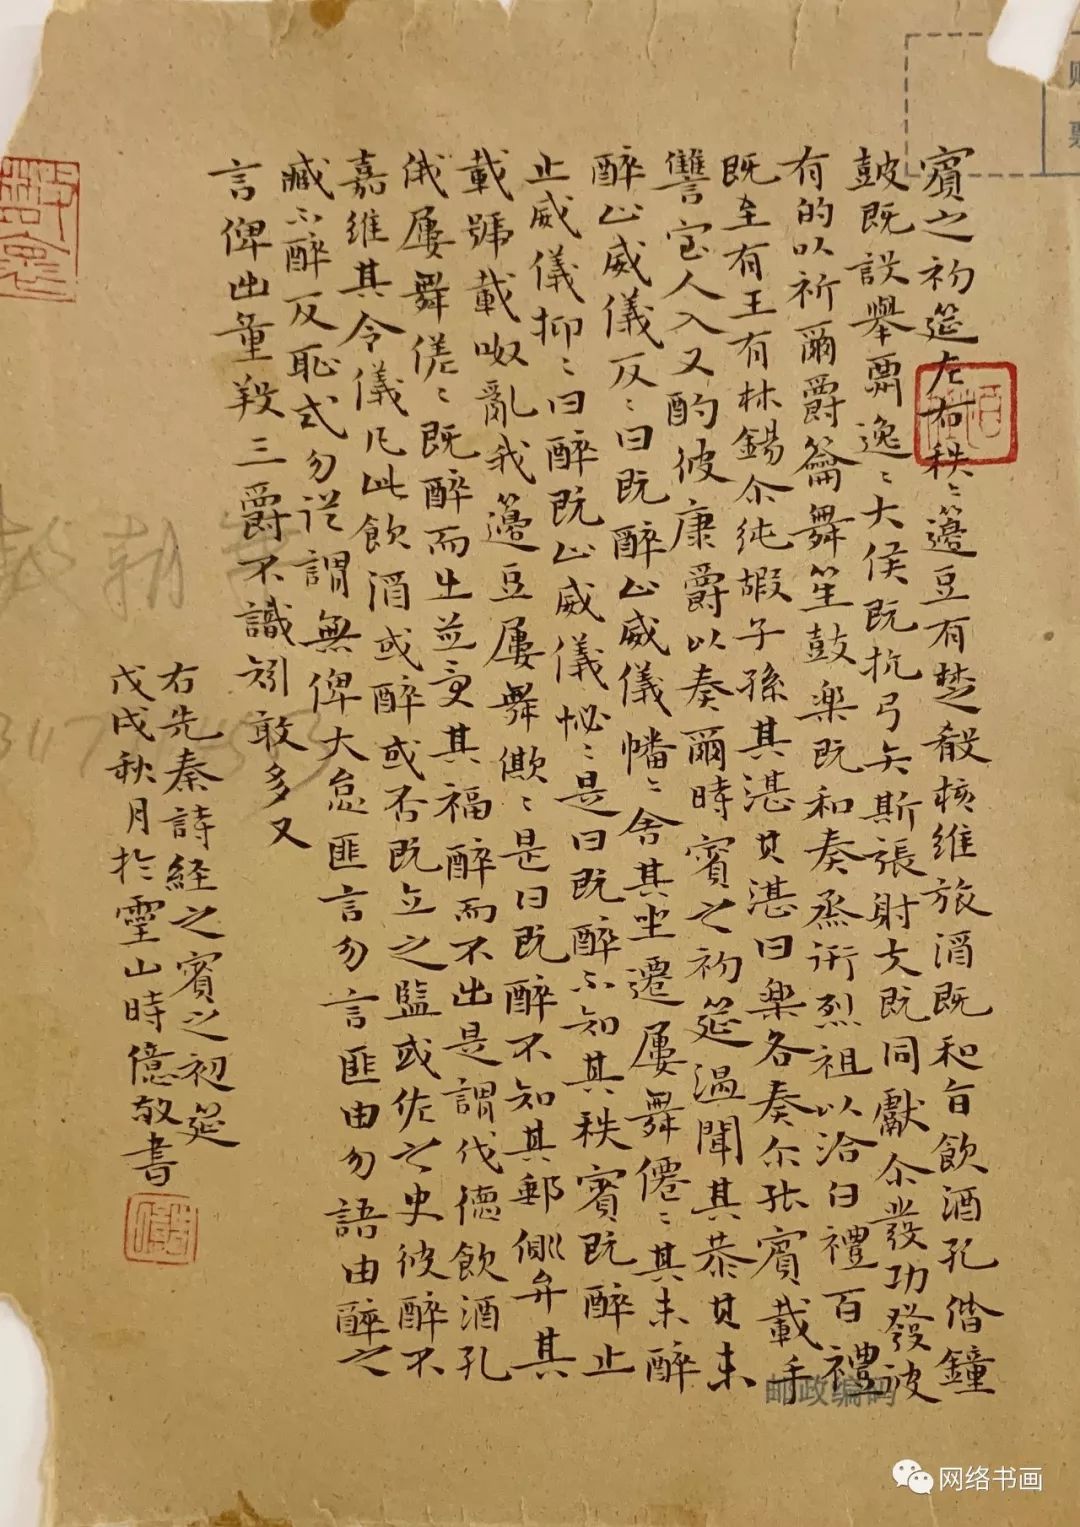 賓之初筵左右秩〻籩豆有楚殽核維旅酒既和旨飲酒孔偕鐘
鼓既設舉醻逸〻大侯既抗弓矢斯張射夫既同獻尒發功發彼
有的以祈爾爵籥舞笙鼓樂既和奏烝衎烈祖以洽百禮百禮
既至有壬有林錫尒純嘏子孫其湛其湛曰樂各奏尔能賓載手
讐室人入又酌彼康爵以奏爾時賓之初筵温聞其恭其未
醉止威儀反〻曰既醉止威儀幡〻舍其坐遷屢舞僊〻其未醉
止威儀抑〻曰醉既止威儀怭〻是曰既醉不知其秩賓既醉止
載號載呶亂我籩豆屢舞僛〻是曰既醉不知其郵側弁其
俄屢舞傞〻既醉而出並受其福醉而不出是謂伐德飲酒孔
嘉維其令儀凡此飲酒或醉或否既立之監或佐之史彼醉不
臧不醉反恥式勿從謂無俾大怠匪言勿言匪由勿語由醉之
言俾出童羖三爵不識矧敢多又
右先秦詩経之賓之初筵
戊戌秋月於靈山時億敬書
邮政编码
网络书画